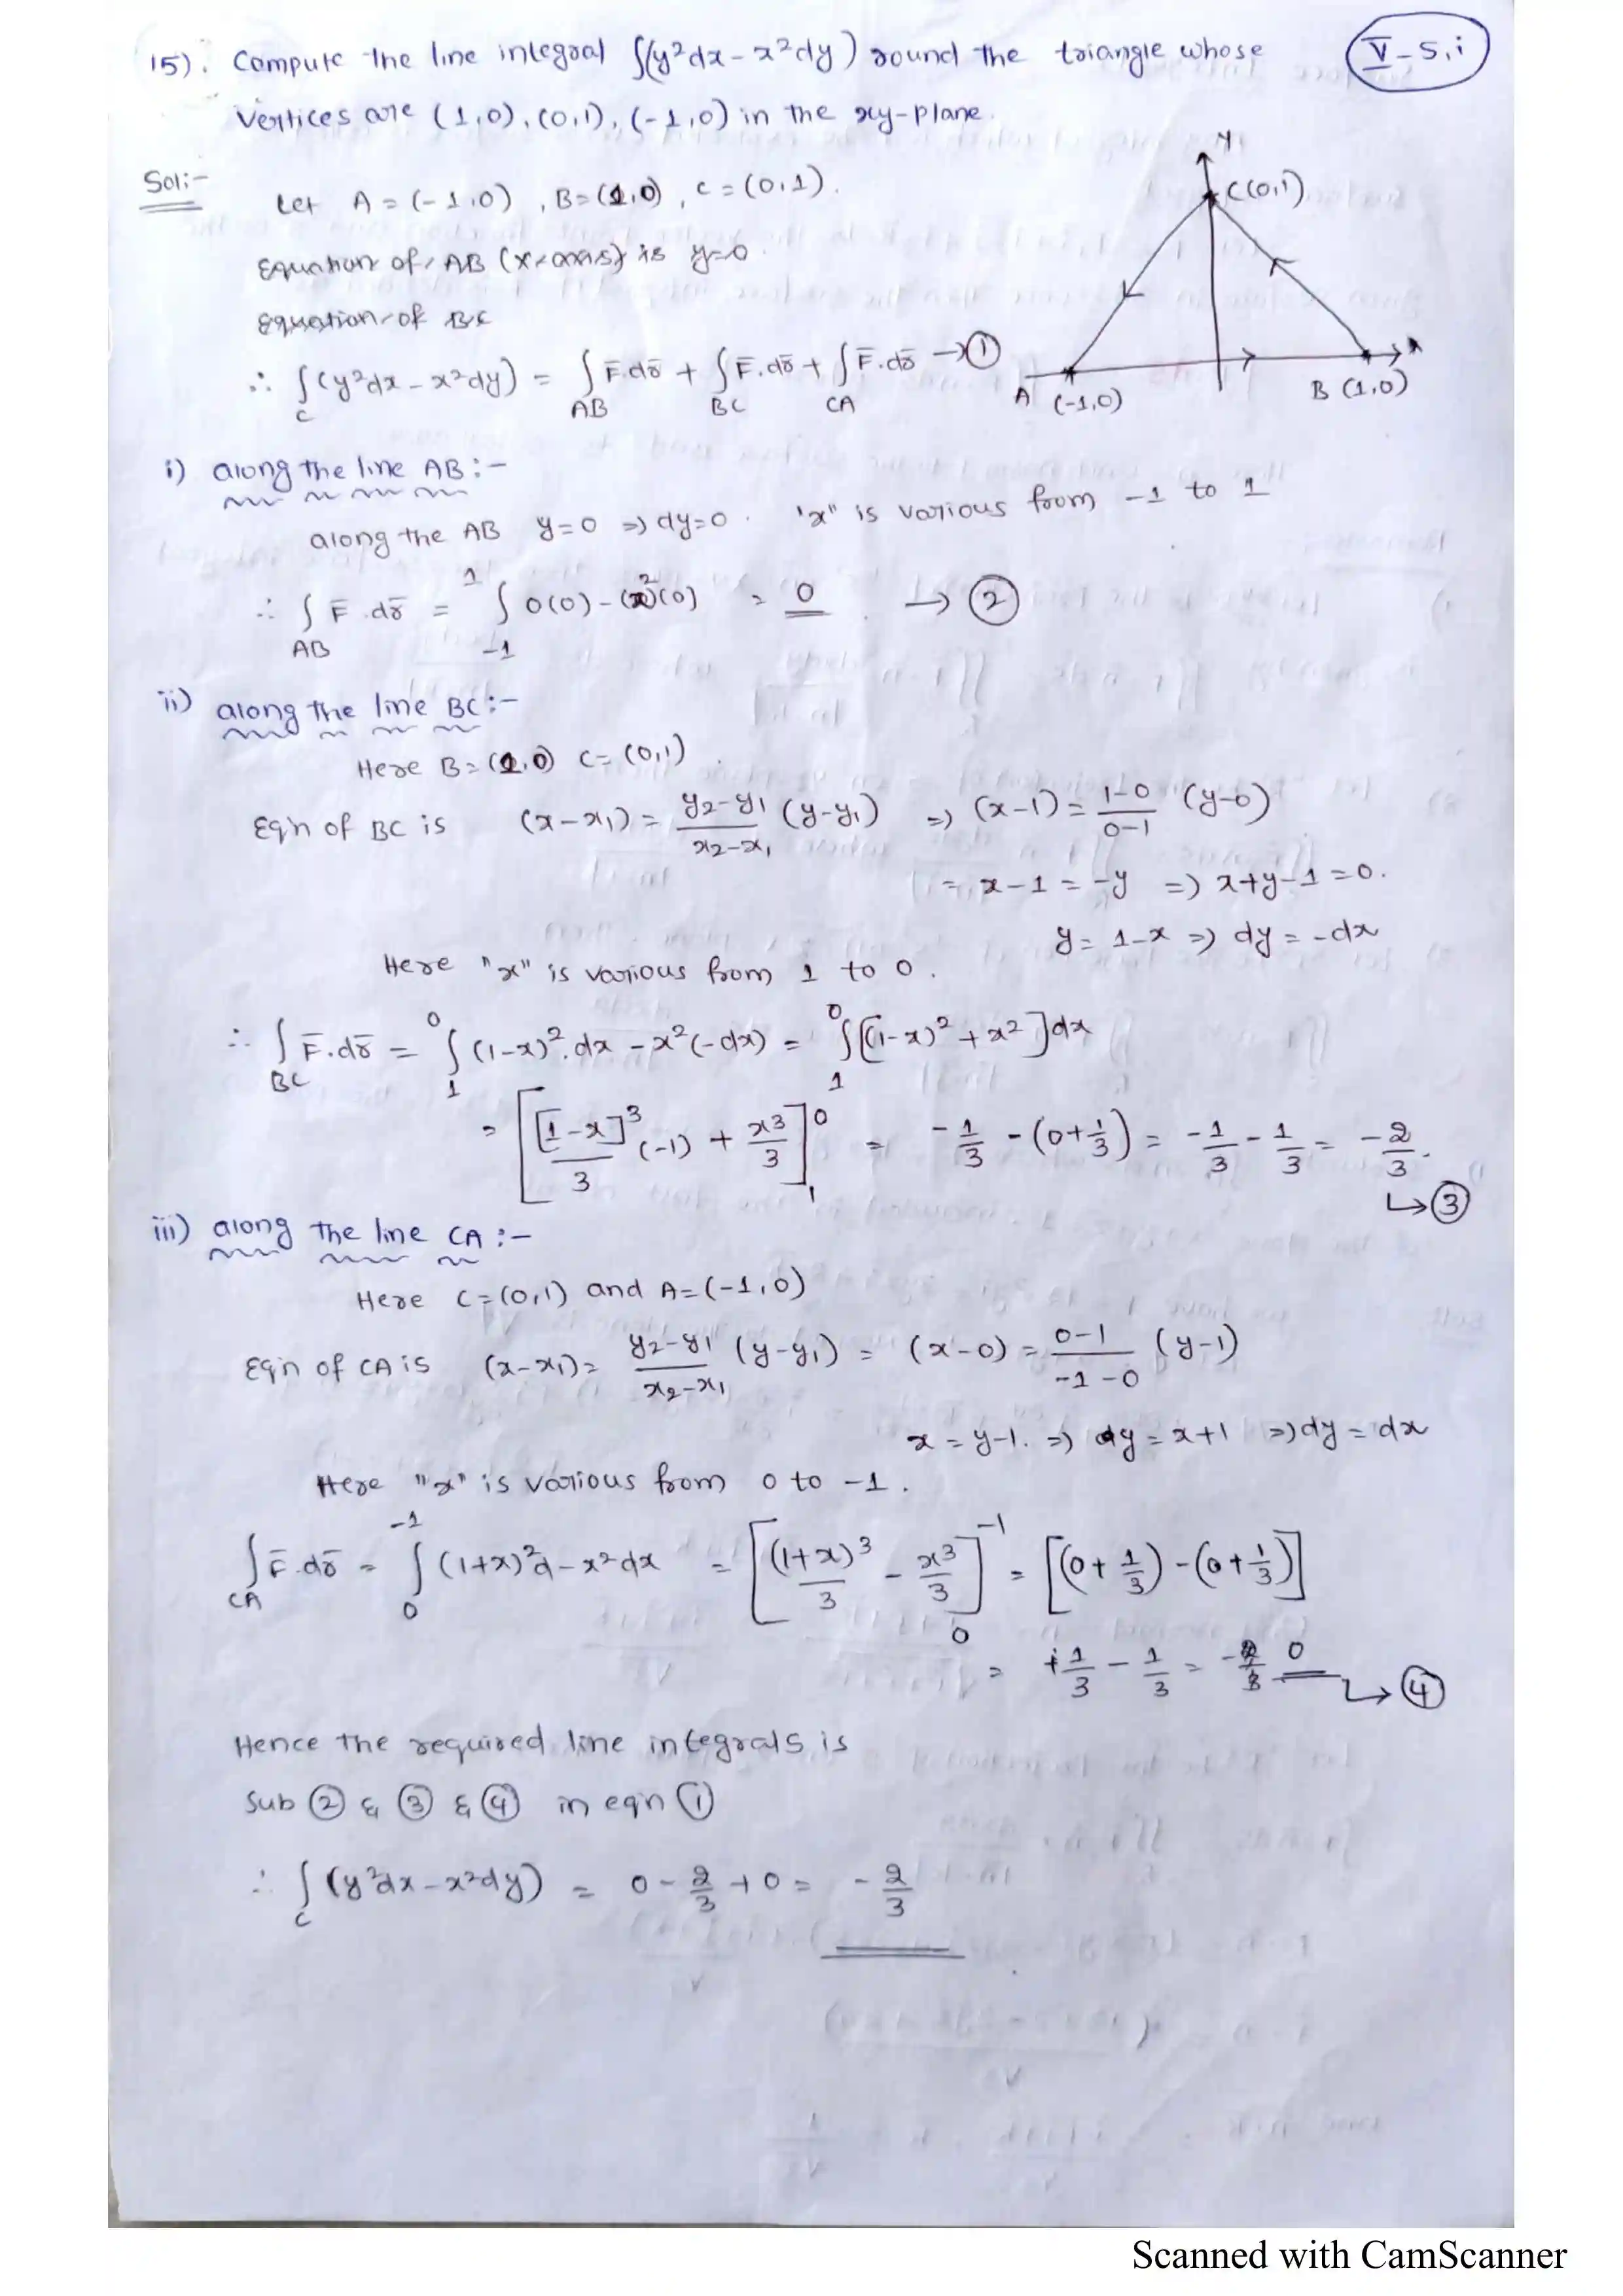 15). Compute the line integral ∫(y²dx - x²dy) round the triangle whose
V-5,i
vertices are (1,0), (0,1), (-1,0) in the xy-plane.
Sol:-
Let A = (-1,0), B = (1,0), C = (0,1).
Equation of AB (x-axis) is y=0
Equation of BC
∴ ∫_C (y²dx - x²dy) = ∫_AB F̄.dr̄ + ∫_BC F̄.dr̄ + ∫_CA F̄.dr̄ → ①
Y
C(0,1)
x
A (-1,0)
B (1,0)
i) along the line AB :-
along the AB y=0 ⇒ dy=0. "x" is various from -1 to 1
∴ ∫_AB F̄.dr̄ = ∫_{-1}^{1} 0(0) - (x)²(0) = 0 → ②
ii) along the line BC :-
Here B = (1,0) C = (0,1).
Eq'n of BC is (x-x₁) = (y₂-y₁)/(x₂-x₁) (y-y₁) ⇒ (x-1) = (1-0)/(0-1) (y-0)
= x-1 = -y ⇒ x+y-1=0.
y = 1-x ⇒ dy = -dx
Here "x" is various from 1 to 0.
∴ ∫_BC F̄.dr̄ = ∫_1^0 (1-x)².dx - x²(-dx) = ∫_1^0 [(1-x)² + x²]dx
= [[1-x]³/3 (-1) + x³/3]_1^0 = -1/3 - (0+1/3) = -1/3 - 1/3 = -2/3. ↳ ③
iii) along the line CA :-
Here C=(0,1) and A=(-1,0)
Eq'n of CA is (x-x₁) = (y₂-y₁)/(x₂-x₁) (y-y₁) = (x-0) = (0-1)/(-1-0) (y-1)
x = y-1. ⇒ y = x+1 ⇒ dy = dx
Here "x" is various from 0 to -1.
∫_CA F̄.dr̄ = ∫_0^{-1} (1+x)²d - x²dx = [(1+x)³/3 - x³/3]_0^{-1} = [(0+1/3) - (0+1/3)]
= +1/3 - 1/3 = 0 ↳ ④
Hence the required line integrals is
Sub ② & ③ & ④ in eq'n ①
∴ ∫_C (y²dx - x²dy) = 0 - 2/3 + 0 = -2/3
Scanned with CamScanner